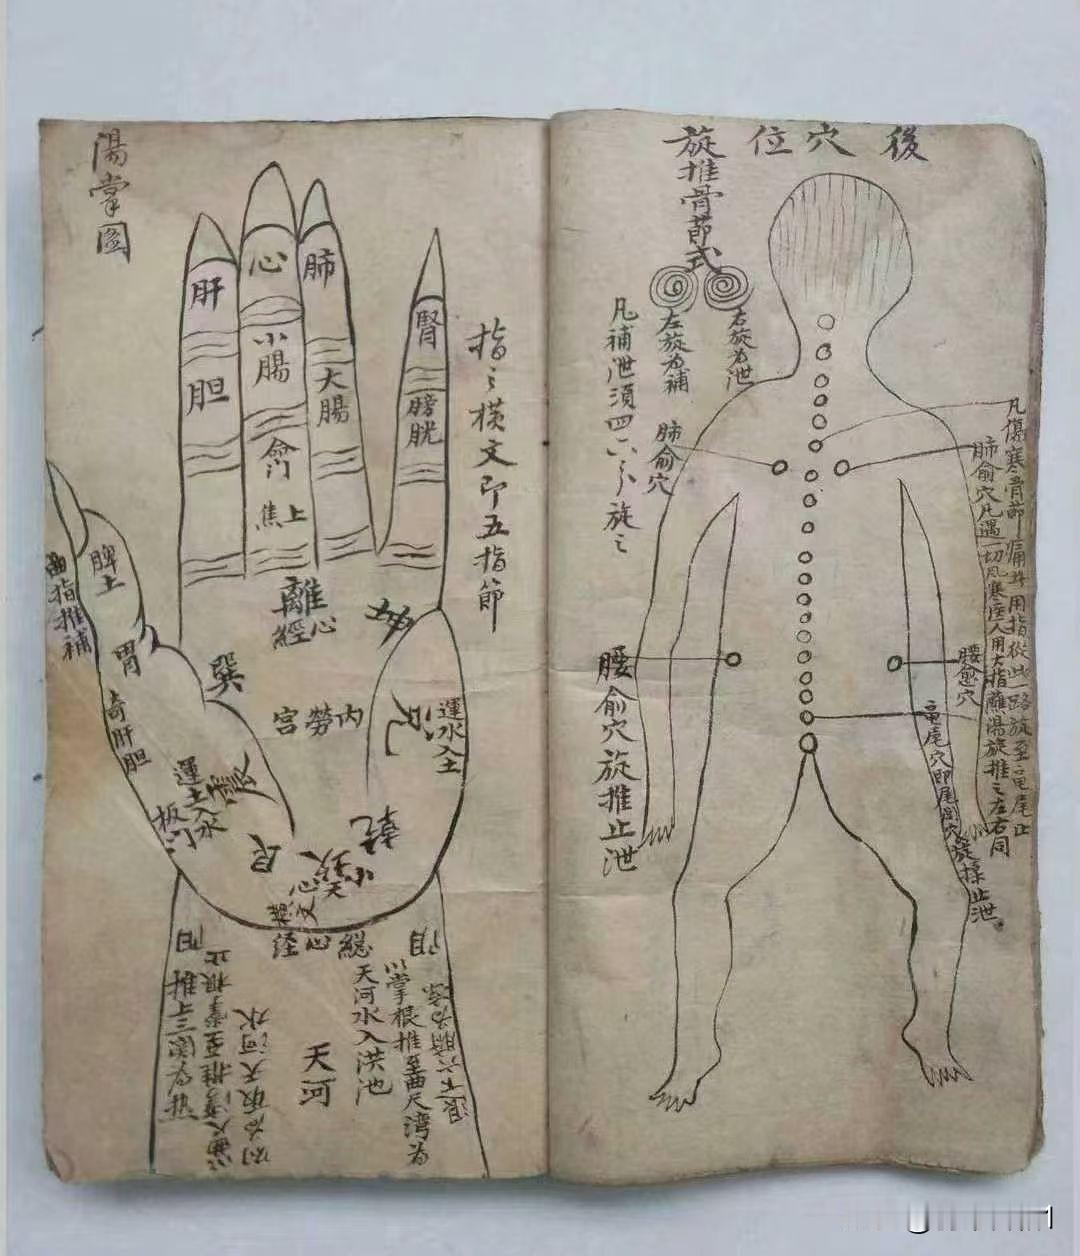 湯掌圖
肝
胆
心
小腸
命門
上焦
肺
大腸
腎
膀胱
指之横文即五指節
曲指推補
脾土
胃
肝胆
離
心經
巽
内勞宮
坤
兌
運水入土
運土入水
板门
震
艮
坎
乾
小天心
總心経
阳
天河
天河水入洪池
以掌根推至曲尺湾為
後穴位
旋推骨節式
左旋為補
右旋為泄
凡補泄須四六分旋之
肺俞穴
腰俞穴旋推止泄
凡傷寒骨節痛者用指從此一路旋至竜尾止
肺俞穴凡遇一切风寒医人用大指蘸湯旋推之左右同
腰愈穴
竜尾穴即尾闾穴旋揉止泄。